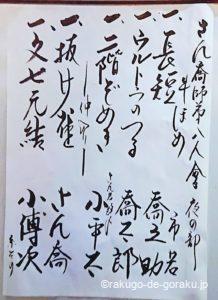 さん喬師弟八人会 夜の部
一、牛ほめ 市若
一、長短 喬之助
一、ウルトラのつる 喬太郎
一、二階ぞめき 小平太
～仲入り～
一、抜け雀 さん喬
一、文七元結 小傳次
©rakugo-de-goraku.jp